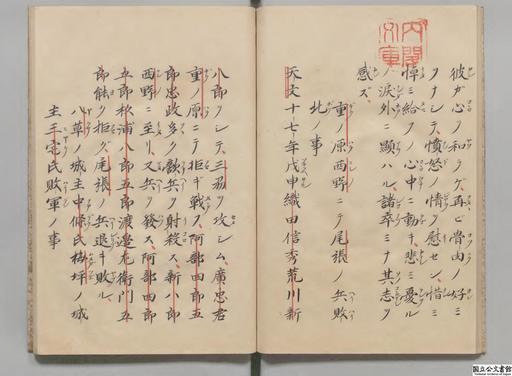 彼カ心ヲ和ラゲ、再ビ骨肉ノ好ミ
ヲナシテ、憤怒ノ情ヲ慰セン、惜ミ
悼ミ給フノ心中ニ動キ、悲ミ憂ル
ノ涙外ニ顕ハル、諸卒ミナ其志ヲ
感ズ、
重ノ原西野ニテ尾張ノ兵敗
北ノ事
天文十七年戊申織田信秀荒川新
八郎ヲシテ、三刕ヲ攻シム、廣忠君
重ノ原ニテ拒ギ戦ス、阿部四郎五
郎忠政多ク敵兵ヲ射殺ス、新八郎
西野ニ至リ、又兵ヲ發ス、阿部四郎
五郎杉浦八郎五郎渡邉右衛門五
郎能ク拒グ、尾張ノ兵退キ敗ル、
八草ノ城主中條氏梅坪ノ城
主三宅氏敗軍ノ事
内閣文庫
国立公文書館
National Archives of Japan